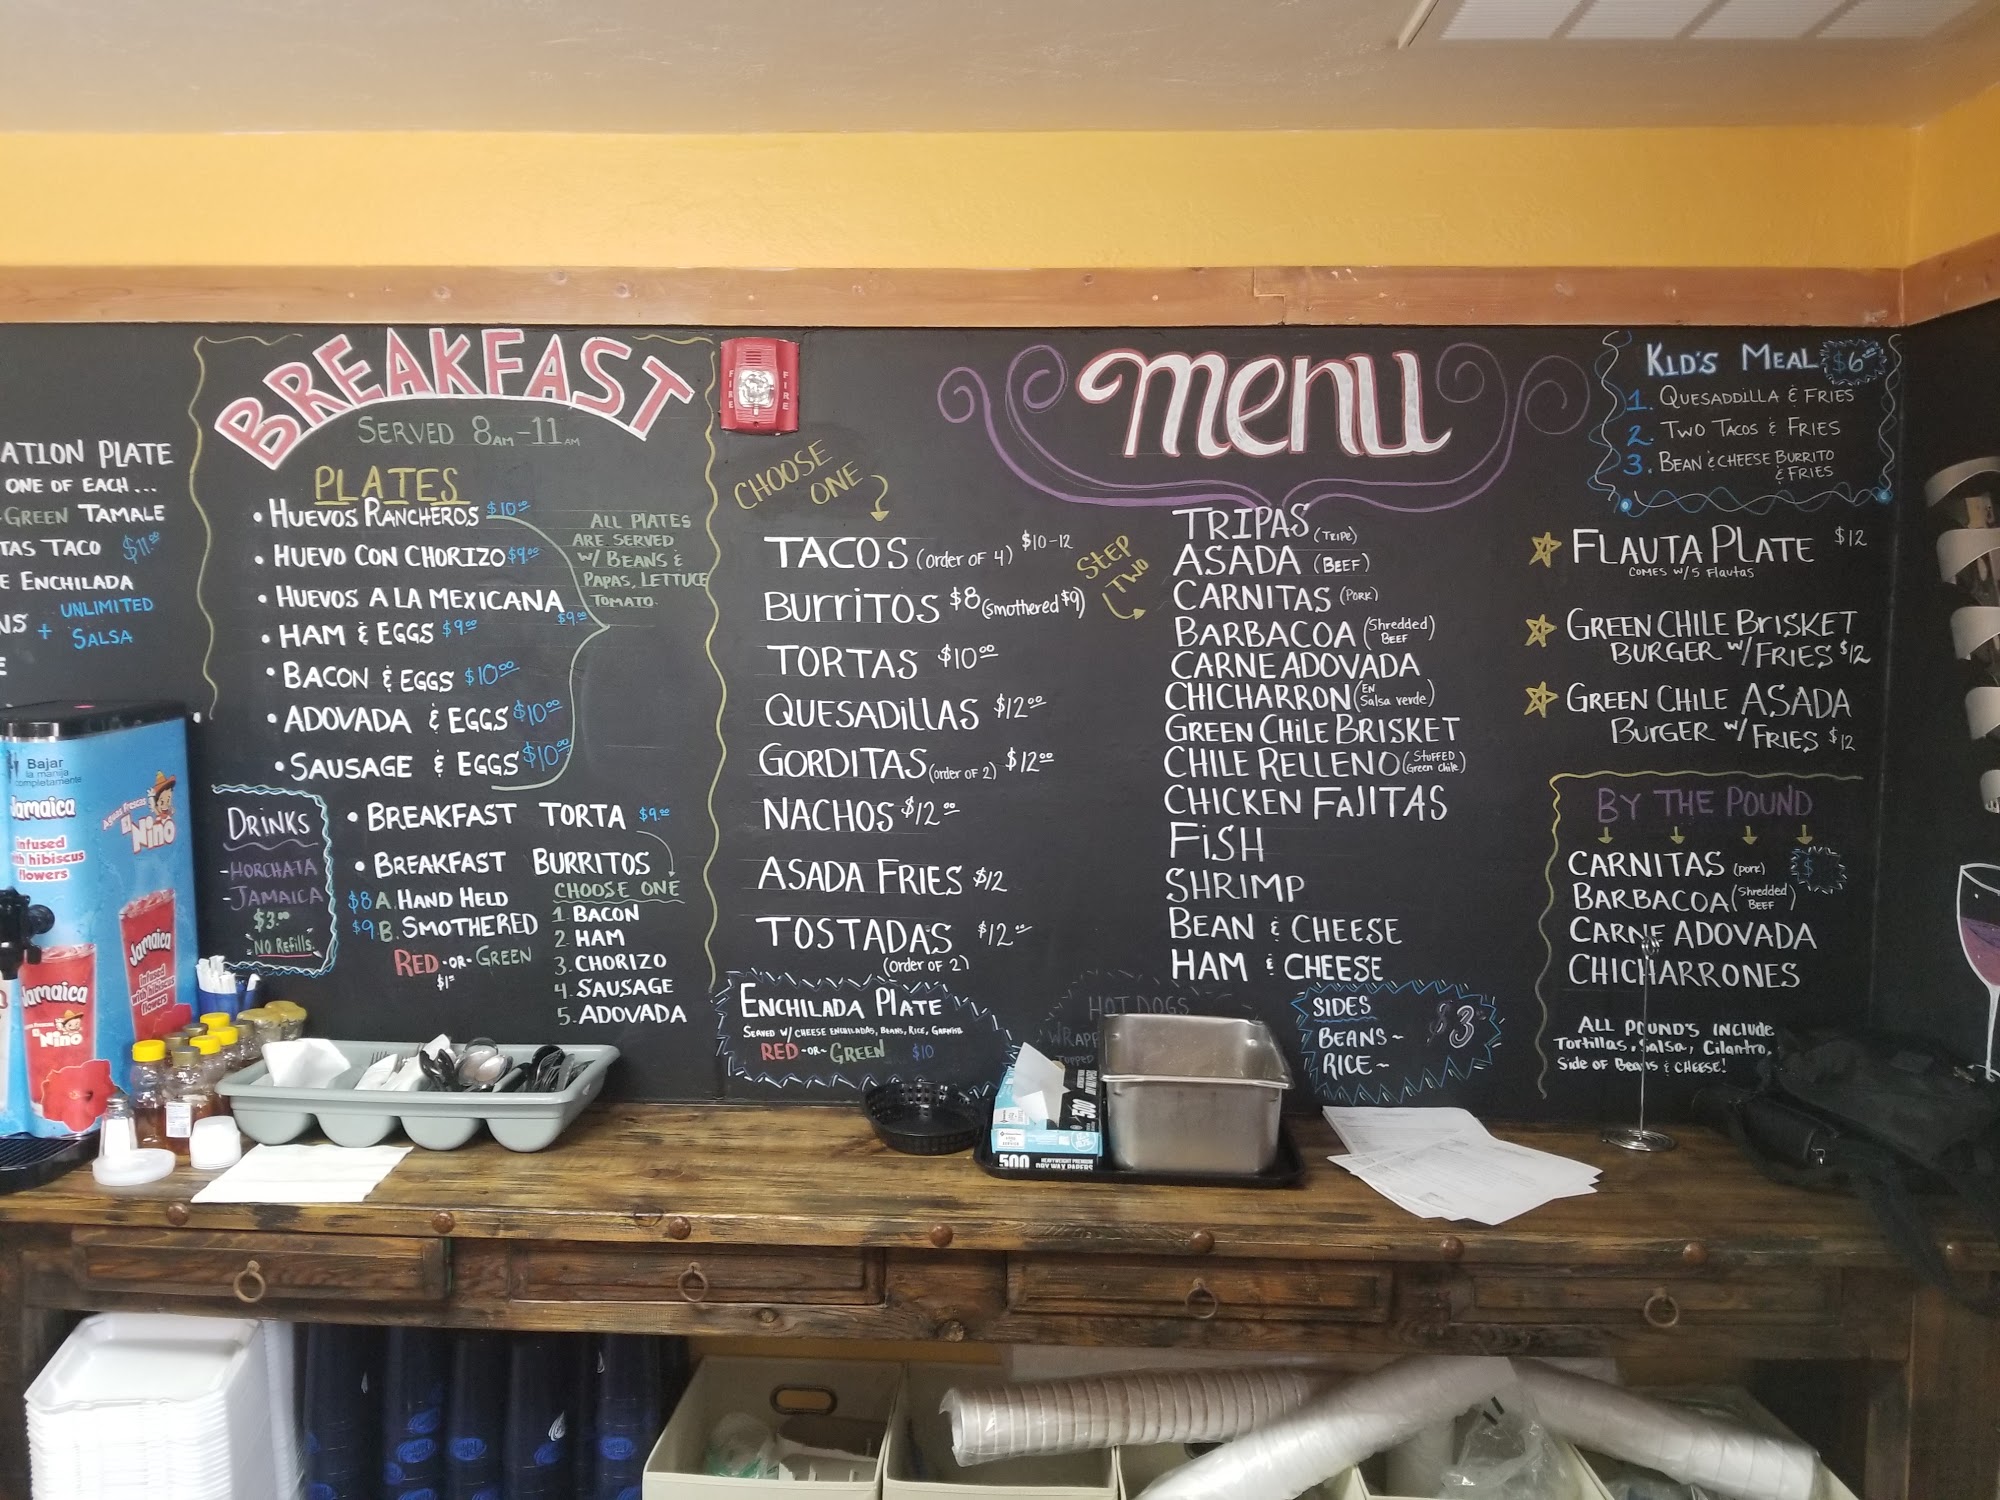 ATION PLATE
ONE OF EACH...
GREEN TAMALE
TAS TACO $11.00
E ENCHILADA
NS + UNLIMITED
SALSA
E
BREAKFAST
SERVED 8AM-11AM
PLATES
• HUEVOS RANCHEROS $10.00
• HUEVO CON CHORIZO $9.00
• HUEVOS A LA MEXICANA
$9.00
• HAM & EGGS $9.00
• BACON & EGGS $10.00
• ADOVADA & EGGS $10.00
• SAUSAGE & EGGS $10.00
ALL PLATES
ARE SERVED
W/ BEANS &
PAPAS, LETTUCE
TOMATO.
DRINKS
-HORCHATA
-JAMAICA
$3.00
NO Refills.
• BREAKFAST TORTA $9.00
• BREAKFAST BURRITOS
$8 A. HAND HELD
$9 B. SMOTHERED
RED -OR- GREEN
CHOOSE ONE
1. BACON
2. HAM
3. CHORIZO
4. SAUSAGE
5. ADOVADA
FIRE
FIRE
menu
CHOOSE
ONE
TACOS (order OF 4) $10-12
BURRITOS $8 (smothered $9)
TORTAS $10.00
QUESADILLAS $12.00
GORDITAS (order OF 2) $12.00
NACHOS $12.00
ASADA FRIES $12
TOSTADAS $12.00
(order OF 2)
ENCHILADA PLATE
SERVED W/ CHEESE ENCHILADAS, BEANS, RICE, GARNISH.
RED -OR- GREEN $10
STEP
TWO
TRIPAS (TRIPE)
ASADA (BEEF)
CARNITAS (PORK)
BARBACOA (Shredded BEEF)
CARNE ADOVADA
CHICHARRON (EN Salsa verde)
GREEN CHILE BRISKET
CHILE RELLENO (STUFFED Green chile)
CHICKEN FAJITAS
FISH
SHRIMP
BEAN & CHEESE
HAM & CHEESE
HOT DOGS
WRAPP
TOPPED
SIDES
BEANS~ $3
RICE~
KID'S MEAL $6
1. QUESADDILLA & FRIES
2. TWO TACOS & FRIES
3. BEAN & CHEESE BURRITO
& FRIES
FLAUTA PLATE $12
COMES W/ 5 Flautas
GREEN CHILE BRISKET
BURGER W/ FRIES $12
GREEN CHILE ASADA
BURGER W/ FRIES $12
BY THE POUND
CARNITAS (pork) $
BARBACOA (Shredded BEEF)
CARNE ADOVADA
CHICHARRONES
ALL POUND'S INCLUDE
Tortillas, Salsa, Cilantro,
Side of Beans & CHEESE!
Bajar
la manija
completamente
Jamaica
infused
th hibiscus
flowers
Aguas frescas
El Nino
Jamaica
infused
with hibiscus
flowers
Jamaica
El Nino
500
500 HEAVYWEIGHT PREMIUM
DRY WAX PAPERS